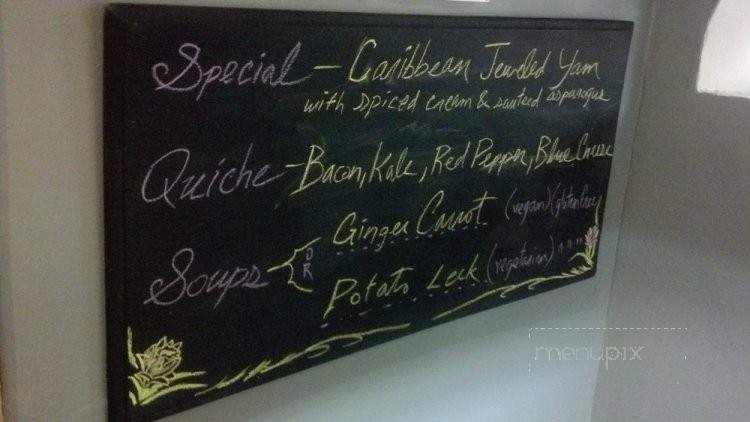 Special - Caribbean Jeweled Yam
with spiced cream & sauteed asparagus
Quiche - Bacon, Kale, Red Pepper, Blue Cheese
Soups OR
Ginger Carrot (vegan) (gluten free)
Potato Leek (vegetarian) " " "
menupix